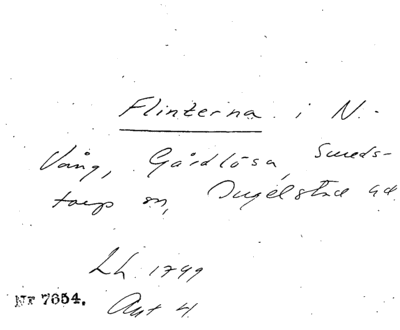 Flinterna i N.
Vång, Gårdlösa, Smeds-
torps sn, Ingelstad hd
Lh. 1799
Nr 7654. Akt 4